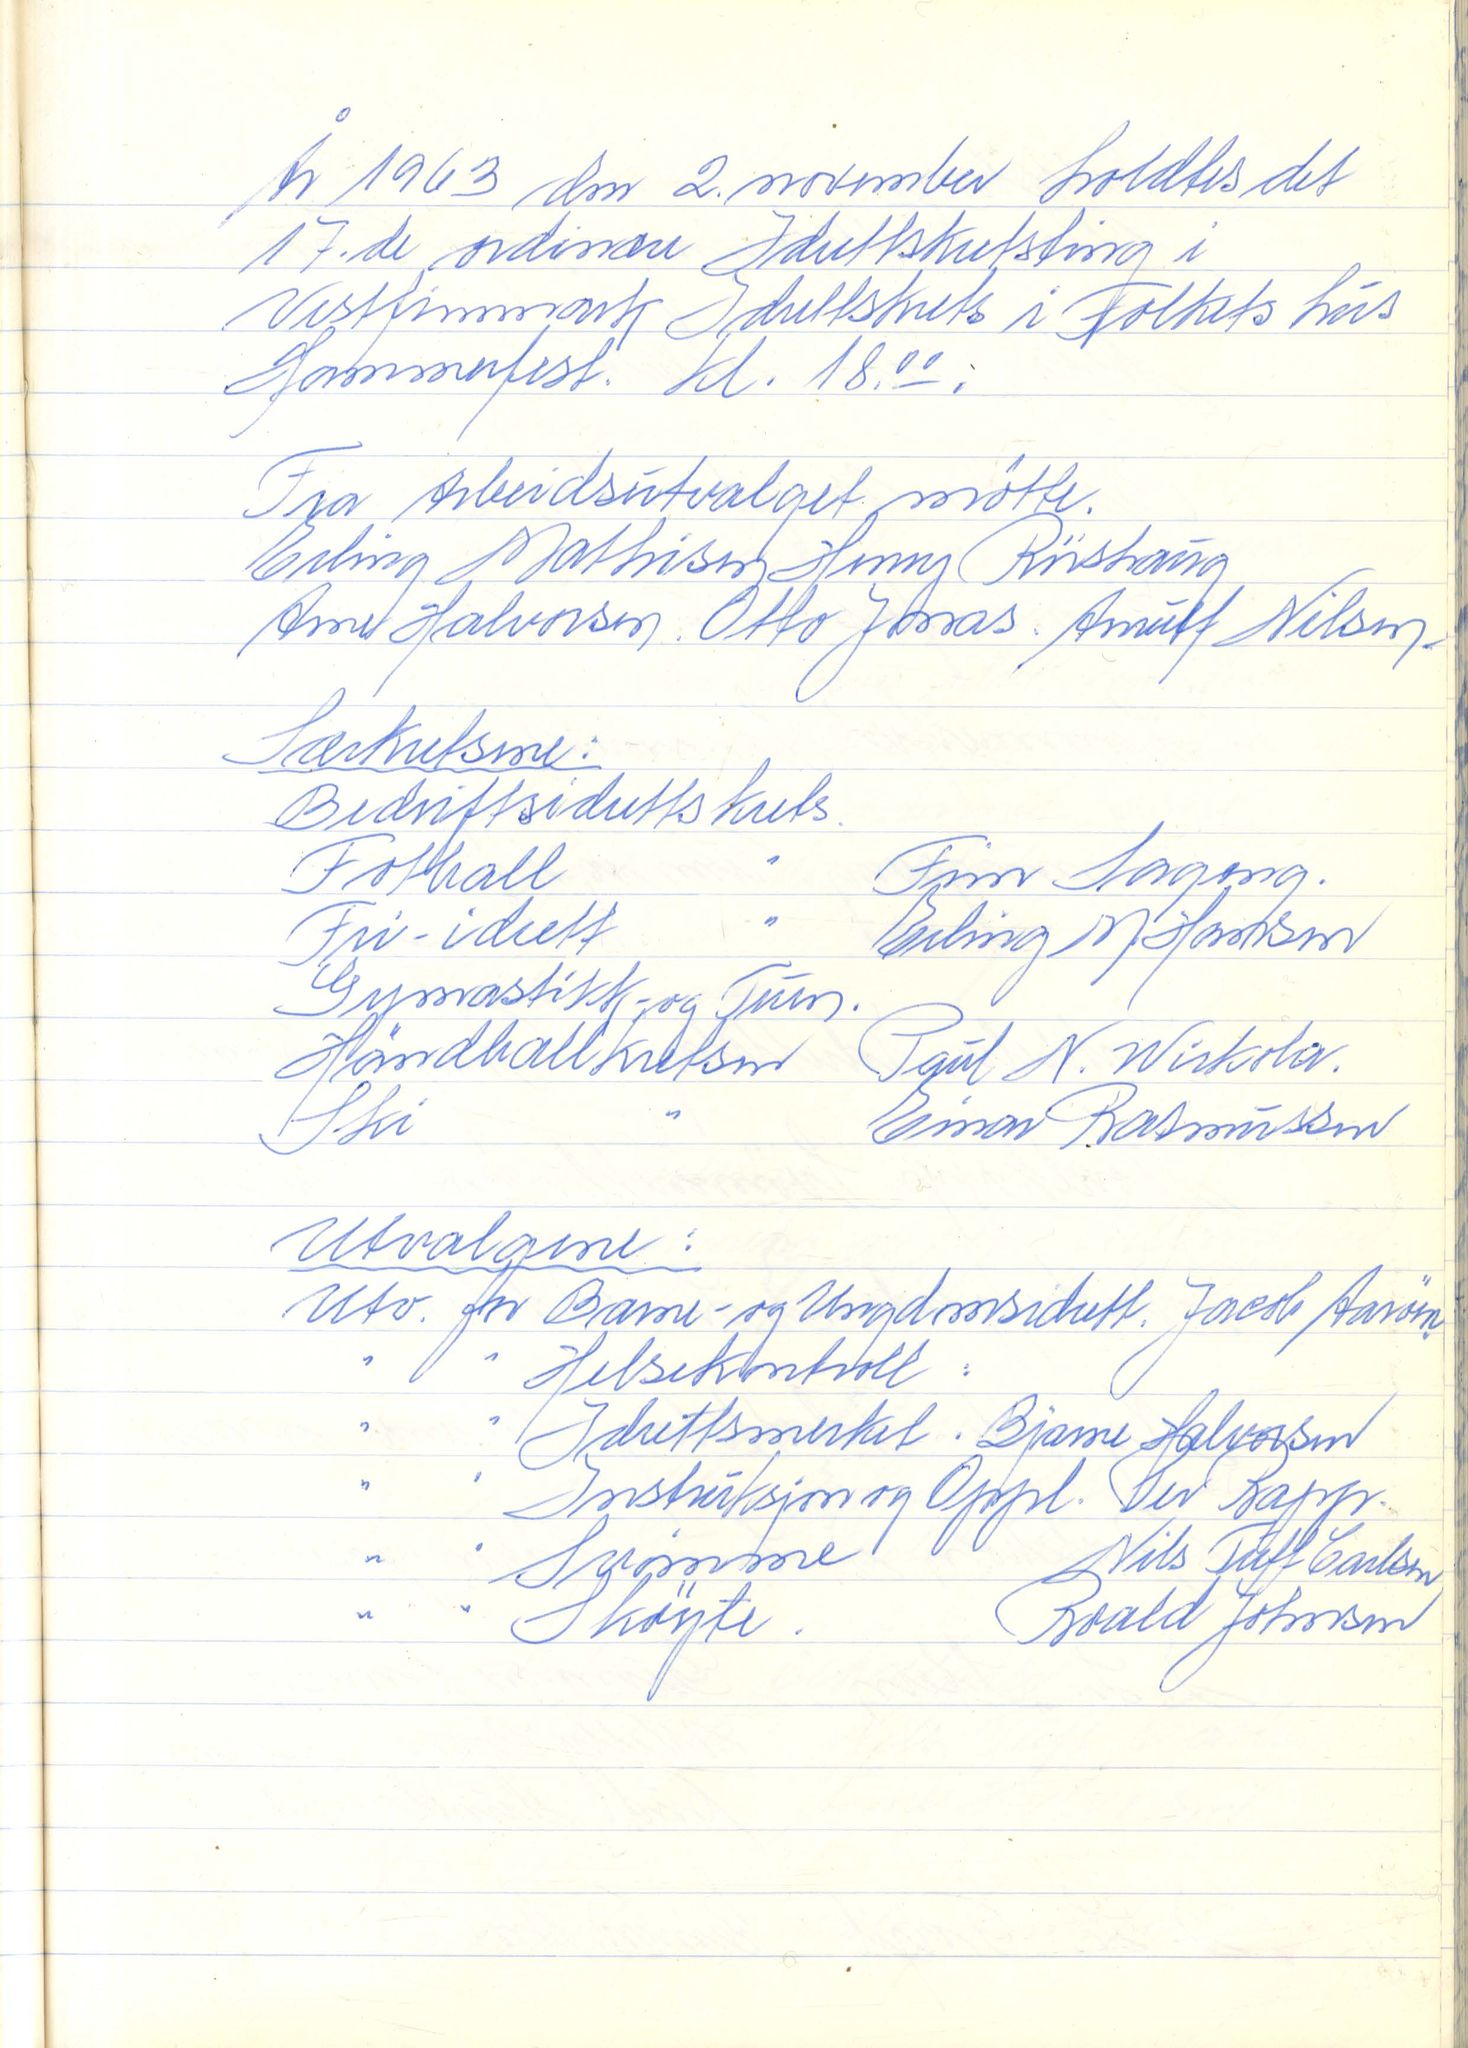 År 1963 den 2. november holdtes det
17.de ordinære Idrettskretsting i
Vestfinnmark Idrettskrets i Folkets hus
Hammerfest. kl. 18.00.
Fra Arbeidsutvalget mötte.
Erling Mathisen Henry Rüshaug
Arne Halvorsen. Otto Jonas. Arnulf Nilsen.
Særkretsene:
Bedriftsidrettskrets.
Fotball " Finn Sagong.
Fri-idrett " Erling M. Hansen
Gymnastikk- og Turn.
Håndballkretsen Paul N. Wirkola.
Ski " Einar Rasmussen
Utvalgene:
Utv. for Barne- og Ungdomsidrett. Jacob Aarön
" " Helsekontroll:
" " Idrettsmerket. Bjarne Halvorsen
" " Instruksjon og Oppl. Per Rapp.
" " Svömme Nils Tuff Carlsen
" " Sköyte. Roald Johnsen